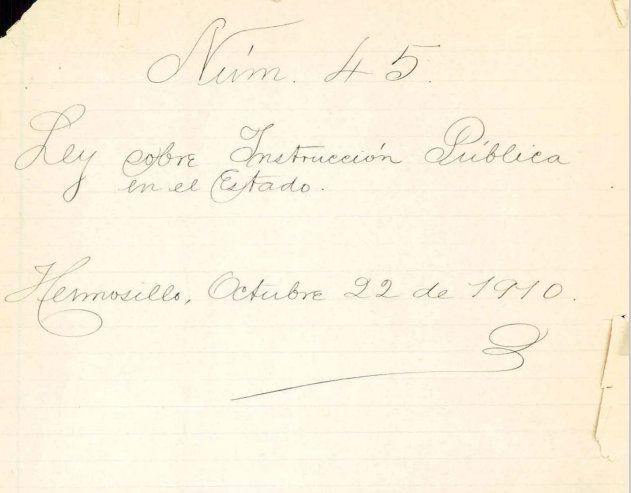 Núm. 45.
Ley sobre Instrucción Pública
en el Estado.
Hermosillo, Octubre 22 de 1910.